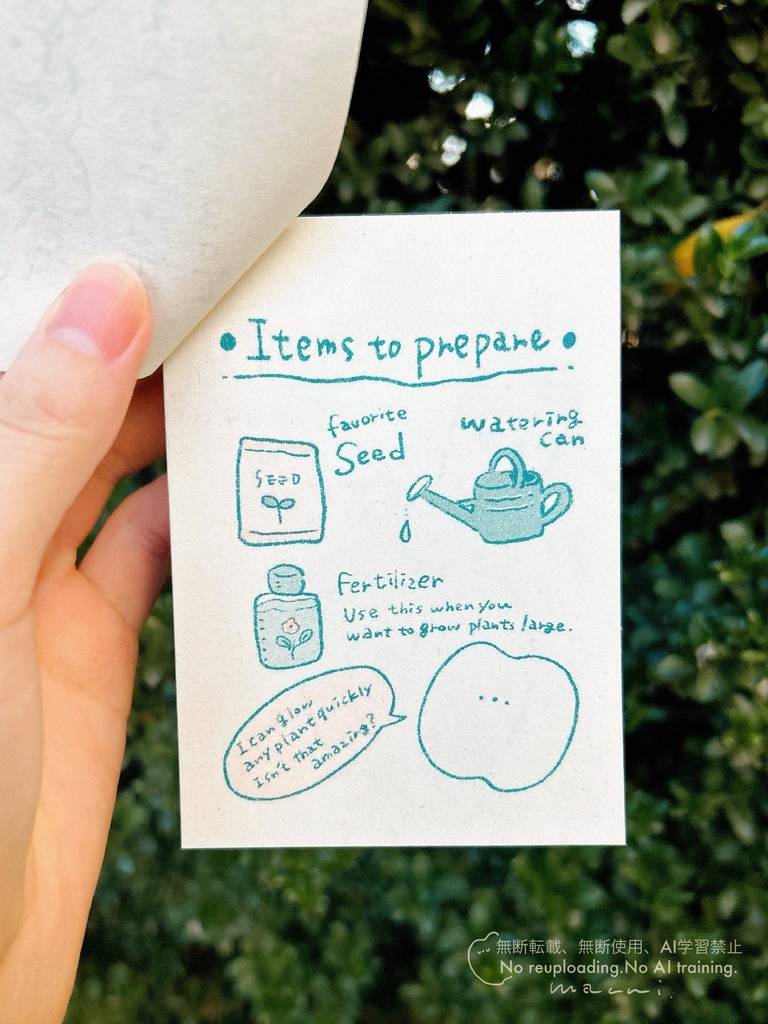 • Items to prepare •
favorite
Seed
SEED
watering
can
Fertilizer
Use this when you
want to grow plants large.
I can glow
any plant quickly
Isn't that
amazing?
無断転載、無断使用、AI学習禁止
No reuploading.No AI training.
macni.